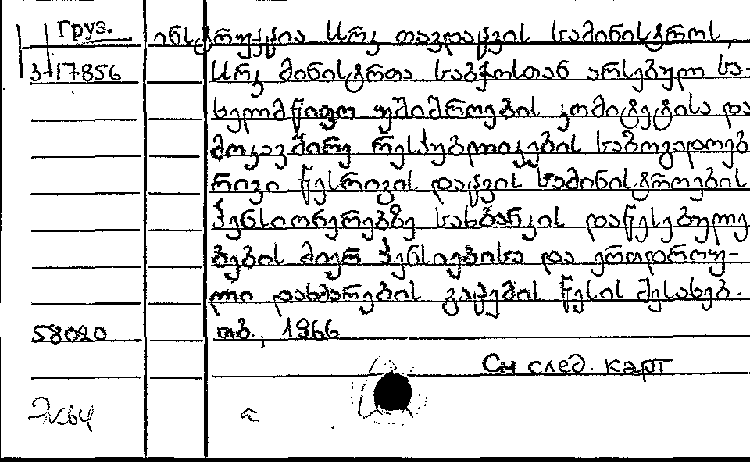 Груз.
ინსტრუქცია სსრკ თავდაცვის სამინისტროს,
3-17856 სსრკ მინისტრთა საბჭოსთან არსებულ სა-
ხელმწიფო უშიშროების კომიტეტისა და
მოკავშირე რესპუბლიკების საზოგადოებ
რივი წესრიგის დაცვის სამინისტროების
პენსიონერებზე სახბანკის დაწესებულე
ბების მიერ პენსიებისა და ერთდროუ-
ლი დახმარების გაცემის წესის შესახებ.
58020 თბ., 1966
См след. карт